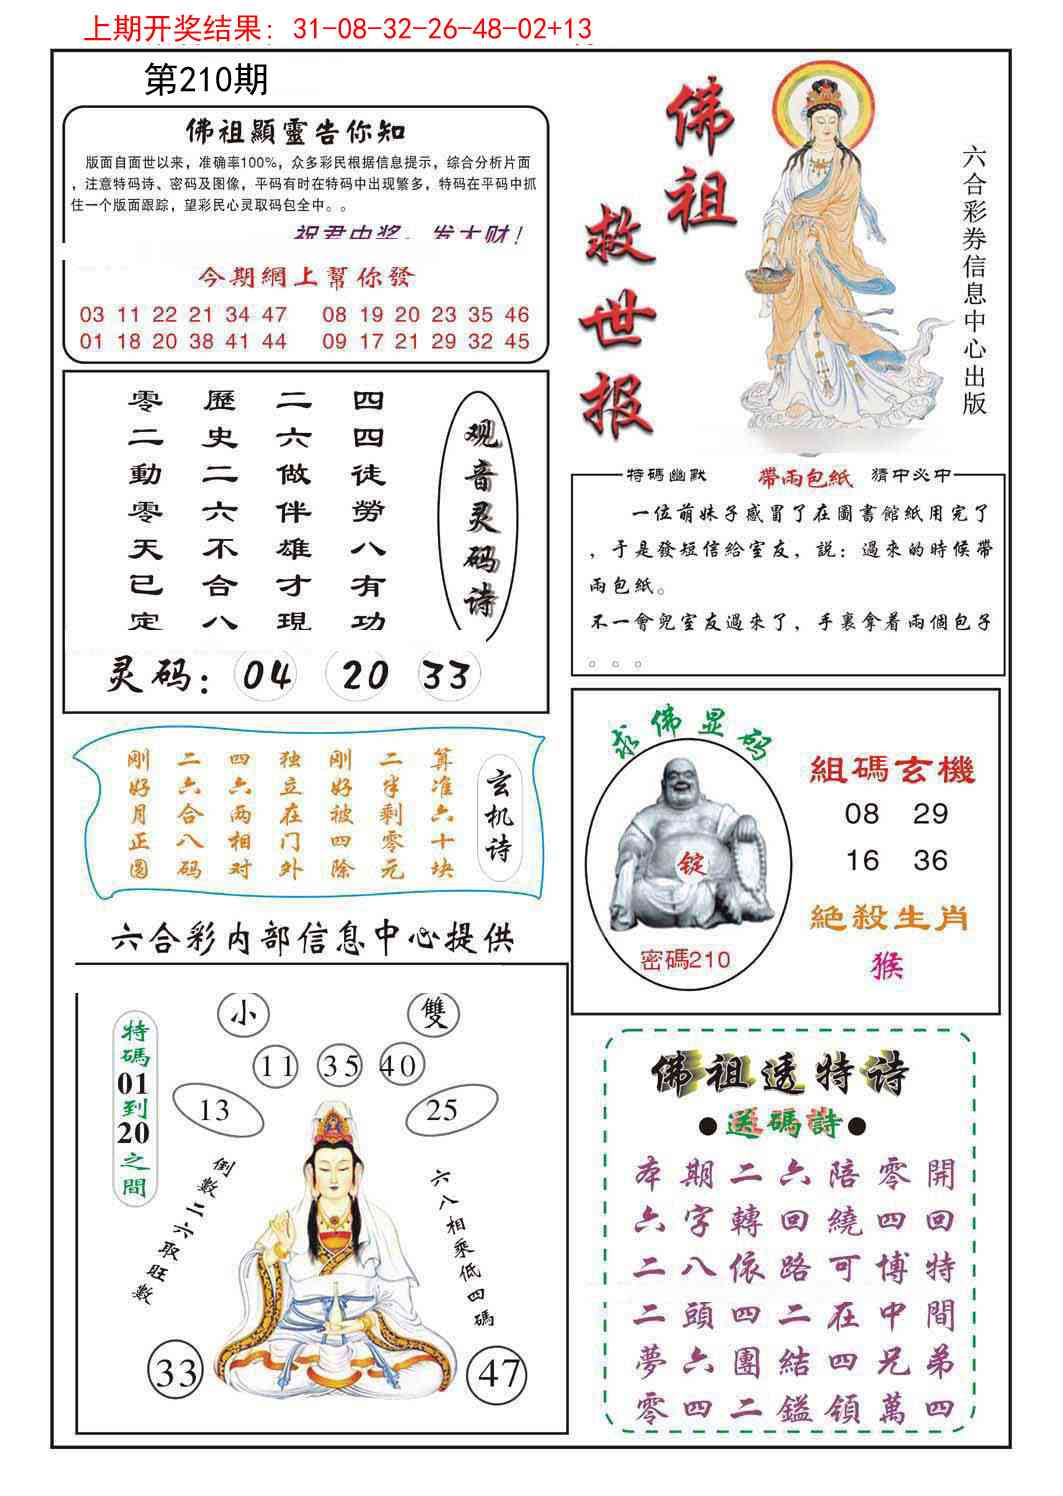 上期开奖结果: 31-08-32-26-48-02+13
第210期
佛祖顯靈告你知
版面自面世以来，准确率100%，众多彩民根据信息提示，综合分析片面
，注意特码诗、密码及图像，平码有时在特码中出现繁多，特码在平码中抓
住一个版面跟踪，望彩民心灵取码包全中。。
祝君中奖，发大财！
今期網上幫你發
03 11 22 21 34 47 08 19 20 23 35 46
01 18 20 38 41 44 09 17 21 29 32 45
佛祖
救世报
六合彩券信息中心出版
观音灵码诗
四四徒勞八有功
二六做伴雄才現
歷史二六不合八
零二動零天已定
灵码: 04 20 33
特碼幽默 帶兩包紙 猜中必中
一位萌妹子感冒了在圖書館紙用完了
，于是發短信給室友，説：過來的時候帶
兩包紙。
不一會兒室友過來了，手裏拿着兩個包子
。。。
玄机诗
算准六十块
二半剩零元
刚好被四除
独立在门外
四六两相对
二六合八码
刚好月正圆
六合彩内部信息中心提供
求佛显码
锭
密碼210
組碼玄機
08 29
16 36
絕殺生肖
猴
小 雙
特碼01到20之間
11 35 40
13 25
倒數二六取旺數
六八相乘低四碼
33 47
佛祖透特诗
●送碼詩●
本期二六陪零開
六字轉回繞四回
二八依路可博特
二頭四二在中間
夢六團結四兄弟
零四二鎰領萬四